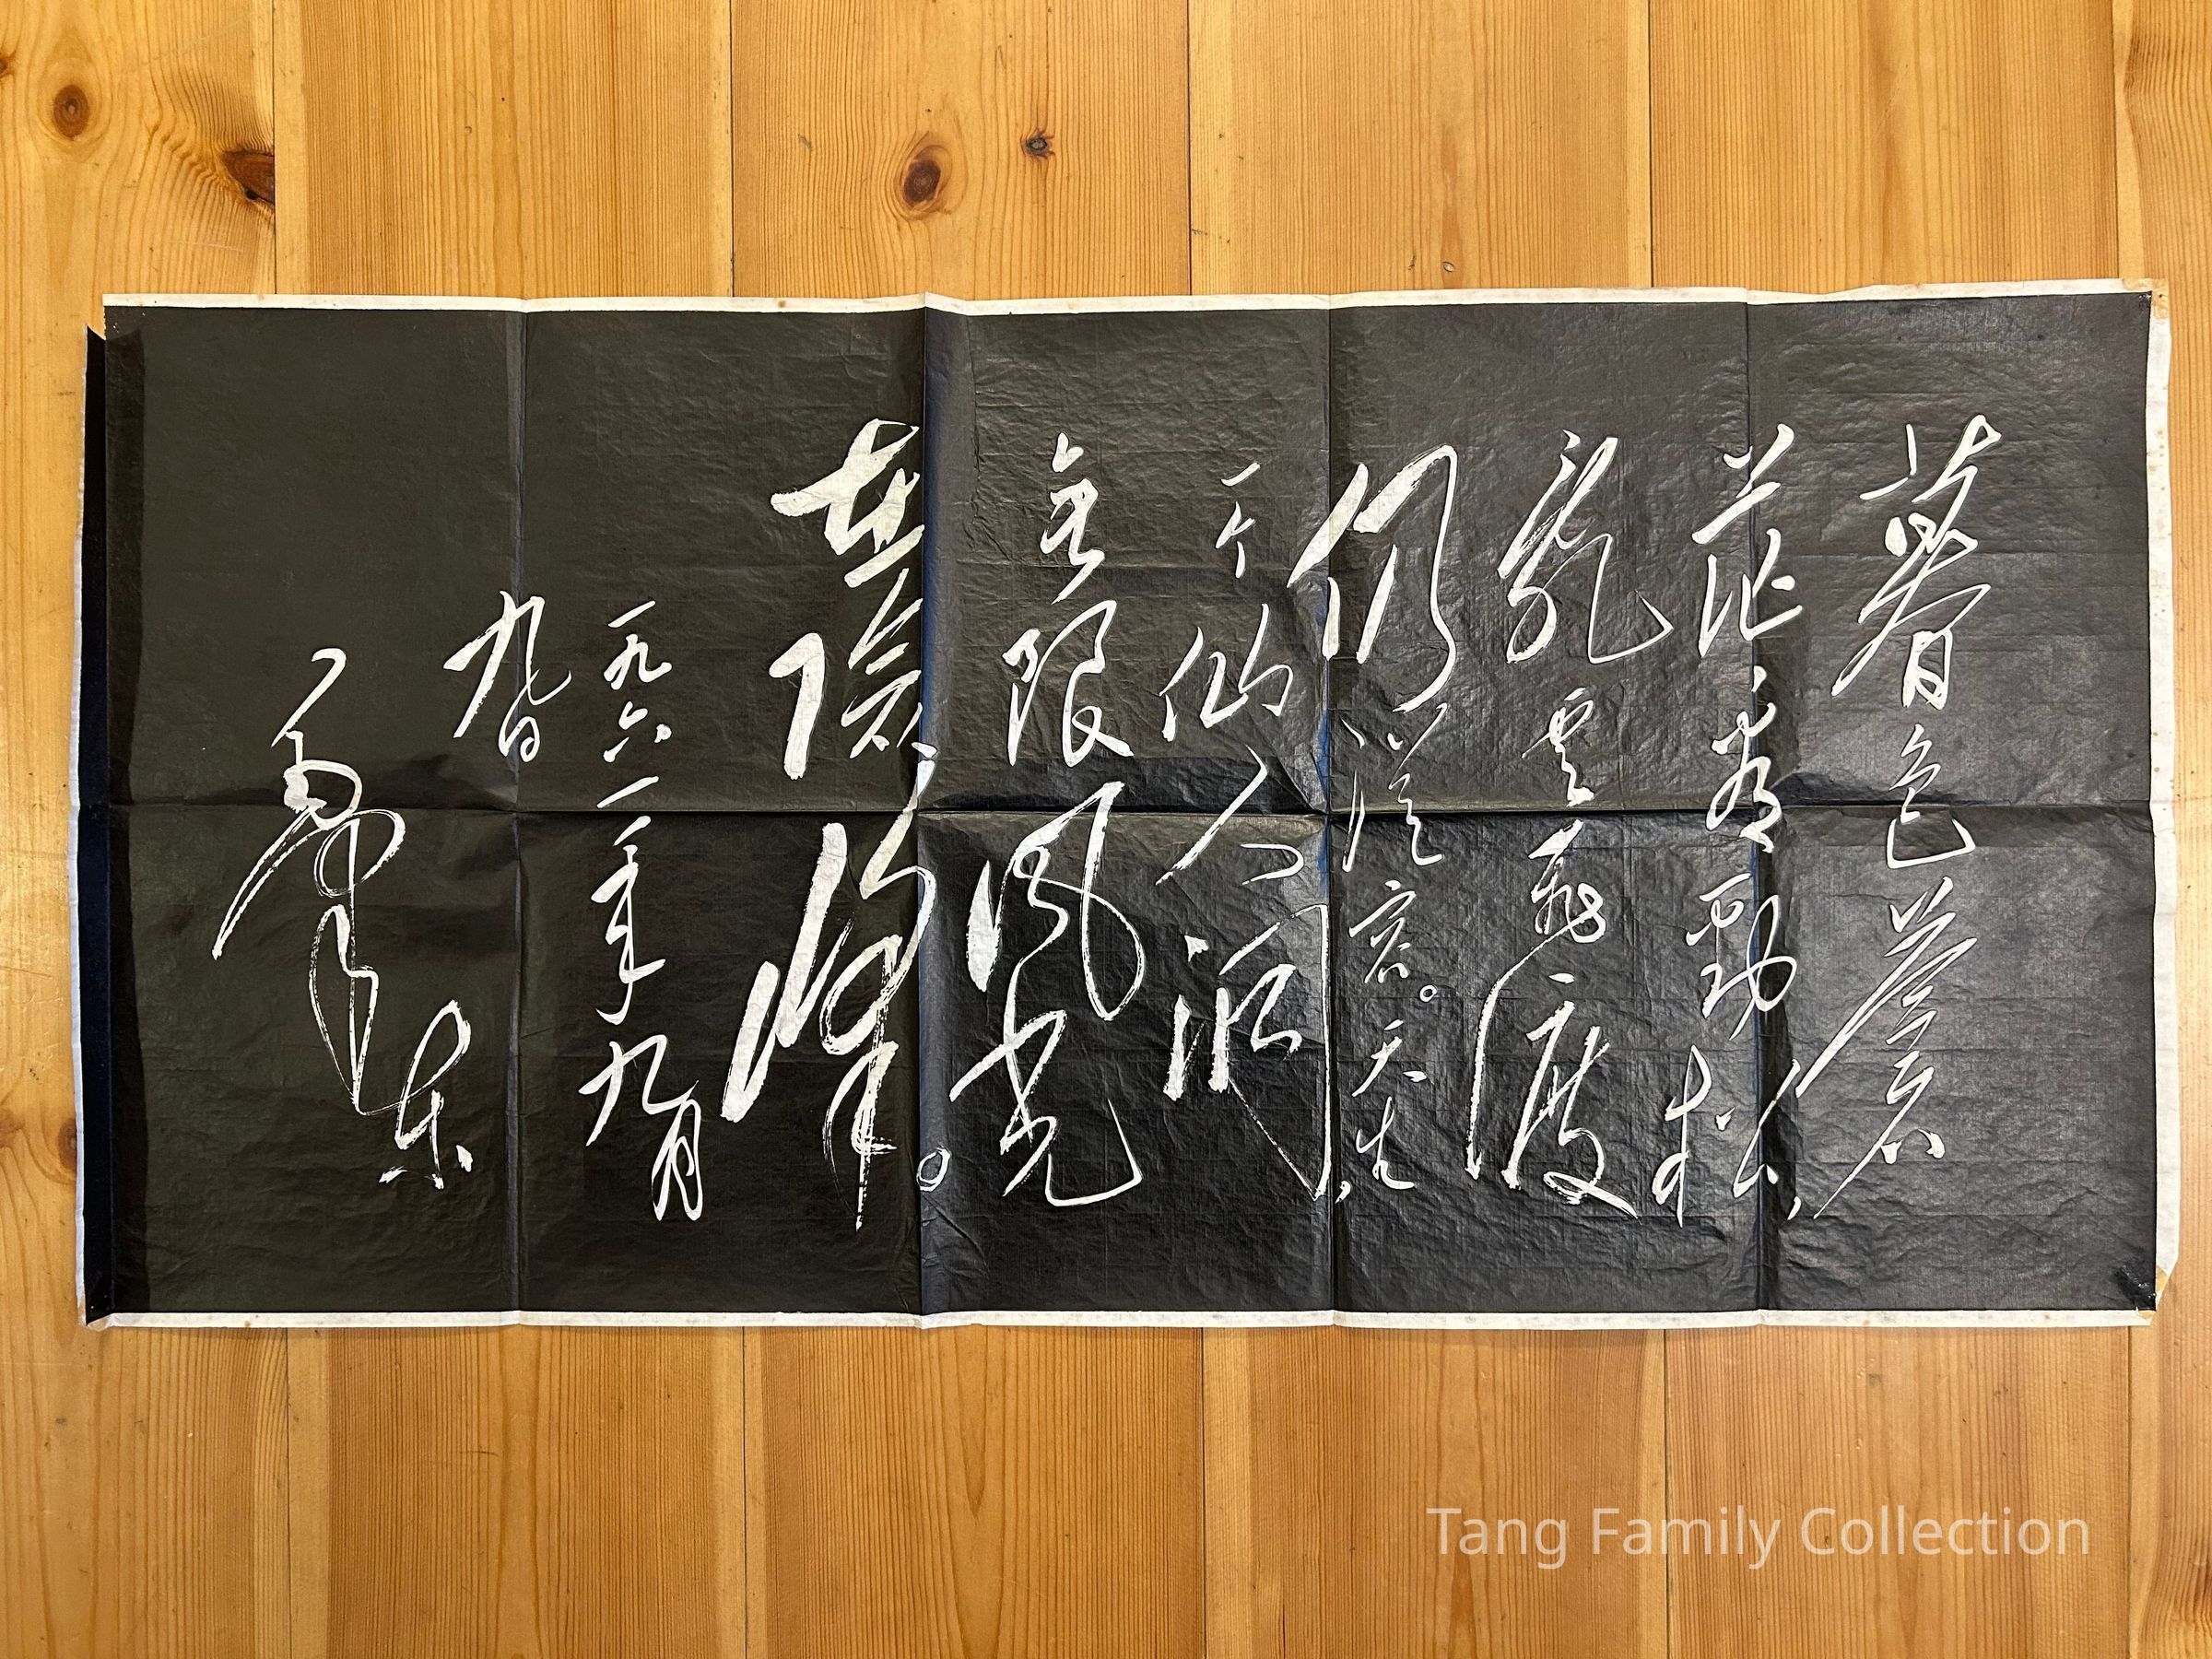 暮色蒼
茫看勁松,
亂雲飛渡
仍從容。天生
一个仙人洞,
無限風光
在險峰。
一九六一年九月
九日
毛澤東
Tang Family Collection